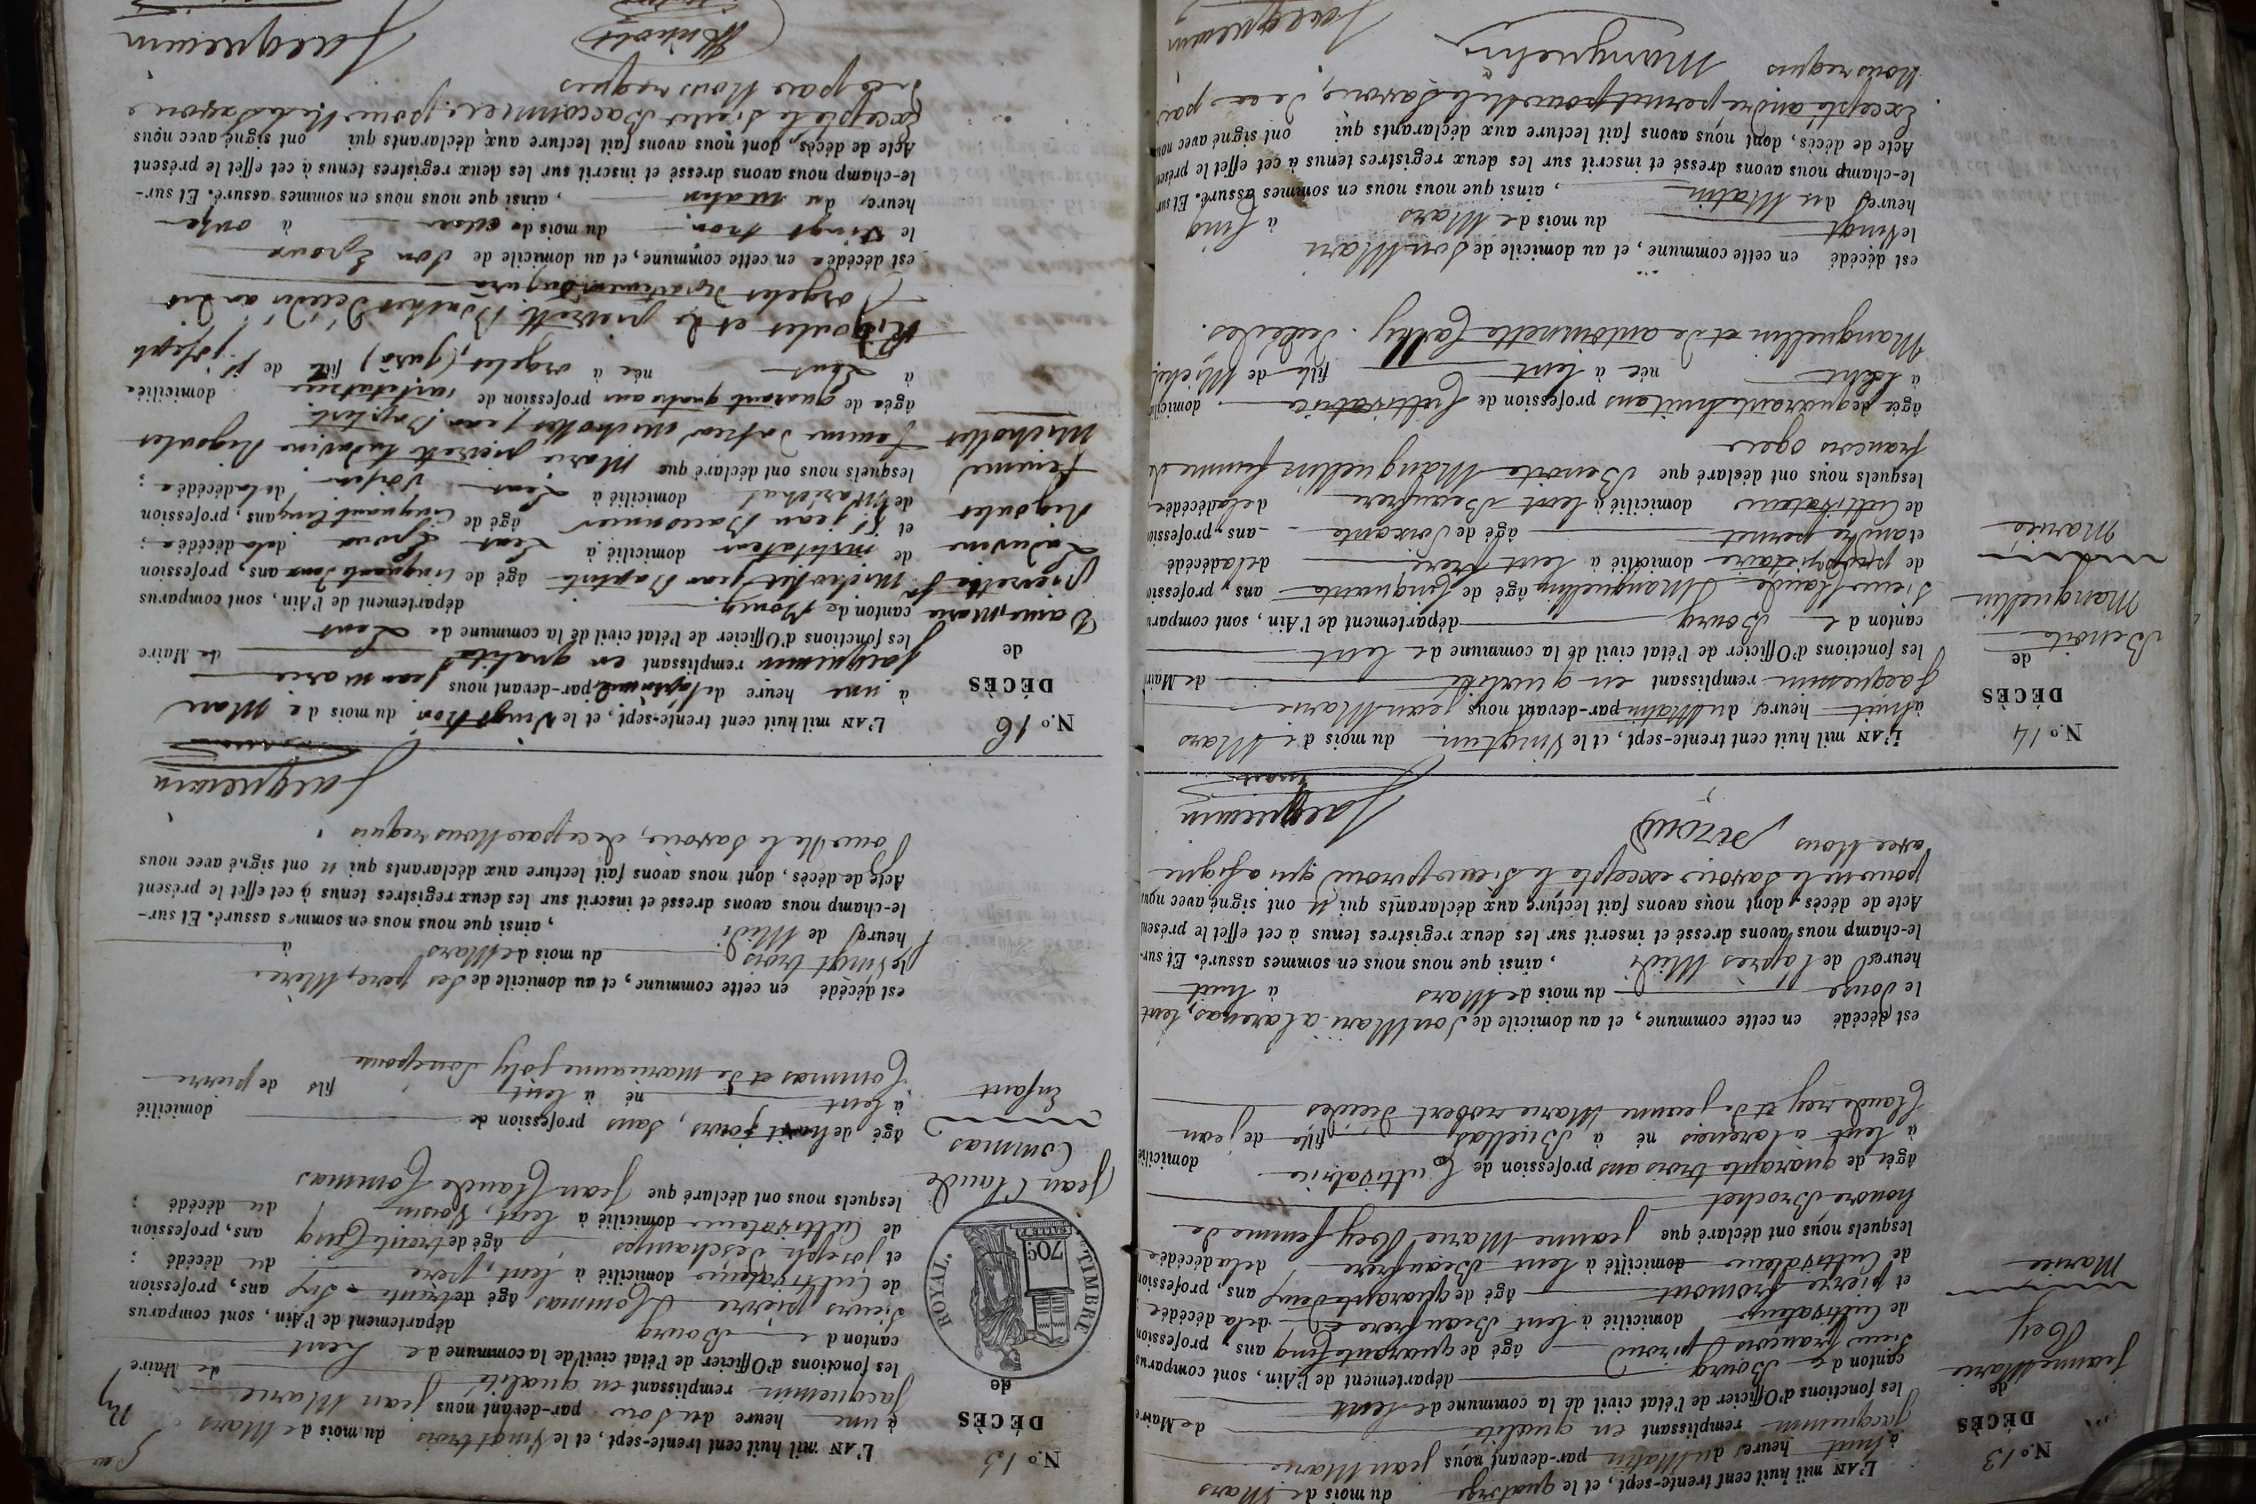 N.º 13
DÉCÈS
de
jeanne Marie
Rey
Marie
L'AN mil huit cent trente-sept, et le quatorze du mois de Mars
à huit heures du Matin par-devant nous jean Marie
jacquemin remplissant en qualité de Maire
les fonctions d'Officier de l'état civil de la commune de lent
canton de Bourg département de l'Ain, sont comparus
Sieur francois piroud âgé de quarante cinq ans, profession
de Cultivateur domicilié à lent Beaufrere de la décédée
et pierre fromont âgé de quarante deux ans, profession
de Cultivateur domicilié à lent Beaufrere de la décédée
lesquels nous ont déclaré que jeanne Marie Rey femme de
honoré Brochet
âgée de quarante trois ans profession de Cultivatrice domicilié
à lent né à Buellas fille de jean
Claude rey et de jeanne Marie robert Décédés
est décédé en cette commune, et au domicile de son Mari
le douze du mois de Mars à huit
heures de l'après Midi, ainsi que nous nous en sommes assuré. Et sur-
le-champ nous avons dressé et inscrit sur les deux registres tenus à cet effet le présent
Acte de décès, dont nous avons fait lecture aux déclarants qui n' ont signé avec nous
pour ne le savoir excepté le Sieur piroud qui a signé
avec Nous
piroud
Jacquemin
N.º 14
DÉCÈS
de
Benoite
Manguellin
Mariée
L'AN mil huit cent trente-sept, et le Vingt un du mois de Mars
à huit heures du Matin par-devant nous jean Marie
jacquemin remplissant en qualité de Maire
les fonctions d'Officier de l'état civil de la commune de lent
canton de Bourg département de l'Ain, sont comparus
Sieur Claude Manguellin âgé de Cinquante ans, profession
de propriétaire domicilié à lent frere de la décédé
et andre pernet âgé de Soixante ans, profession
de Cultivateur domicilié à lent Beaufrere de la décédée
lesquels nous ont déclaré que Benoite Manguellin femme de
francois ogier
âgée de quarante huit ans profession de Cultivatrice domicilié
à lent née à lent fille de Michel
Manguellin et de antoinette Décédés.
est décédé en cette commune, et au domicile de son Mari
le Vingt du mois de Mars à Cinq
heures du Matin, ainsi que nous nous en sommes assuré. Et sur-
le-champ nous avons dressé et inscrit sur les deux registres tenus à cet effet le présent
Acte de décès, dont nous avons fait lecture aux déclarants qui ont signé avec nous
Excepté andre pernet pour Ne le Savoir, de ce par
Nous requis
Manguelin
Jacquemin
N.º 15
DÉCÈS
de
TIMBRE ROYAL.
70c
jean Claude
Commas
Enfant
L'AN mil huit cent trente-sept, et le Vingt trois du mois de Mars
à une heure du soir par-devant nous jean Marie
Jacquemin remplissant en qualité de Maire
les fonctions d'Officier de l'état civil de la commune de Lent
canton de Bourg département de l'Ain, sont comparus
Sieurs pierre Commas âgé de trente Six ans, profession
de Cultivateur domicilié à lent, pere du décédé ;
et joseph Deschamps âgé de trente Cinq ans, profession
de Cultivateur domicilié à lent, Voisin du décédé ;
lesquels nous ont déclaré que jean Claude Commas
âgé de huit jours, sans profession de domicilié
à lent né à lent fils de pierre
Commas et de marieanne joly Son epouse
est décédé en cette commune, et au domicile de Ses pere, Mère
le Vingt trois du mois de Mars à
heures de Midi, ainsi que nous nous en sommes assuré. Et sur-
le-champ nous avons dressé et inscrit sur les deux registres tenus à cet effet le présent
Acte de décès, dont nous avons fait lecture aux déclarants qui n ont signé avec nous
pour Ne le Savoir, de ce par Nous requis
Jacquemin
N.º 16
DÉCÈS
de
Dame, Marie
pierrette
Ludivine
Rigoulet
femme
Michollet
L'AN mil huit cent trente-sept, et le Vingt trois du mois de Mars
à une heure de l'après midi par-devant nous jean marie
jacquemin remplissant en qualité de Maire
les fonctions d'Officier de l'état civil de la commune de Lent
canton de Bourg département de l'Ain, sont comparus
Michollet jean Baptiste âgé de cinquante deux ans, profession
de instituteur domicilié à Lent Epoux de la décédée ;
et Sr jean Baconnier âgé de Cinquante cinq ans, profession
de Maréchal domicilié à Lent voisin de la décédée ;
lesquels nous ont déclaré que Marie pierrette Ludivine Rigoulet
femme dudit Michollet jean Baptiste
âgée de quarante quatre ans profession de institutrice domiciliée
à Lent née à orgelet (jura) fille de Sr joseph
Rigoulet et de pierrette Décédés au dit
orgelet departement du jura
est décédée en cette commune, et au domicile de son Epoux
le Vingt trois du mois de Mars à onze
heures du matin, ainsi que nous nous en sommes assuré. Et sur-
le-champ nous avons dressé et inscrit sur les deux registres tenus à cet effet le présent
Acte de décès, dont nous avons fait lecture aux déclarants qui ont signé avec nous
Excepté le Sieur Baconnier pour Ne le Savoir
de ce par Nous requis
Michollet
Jacquemin